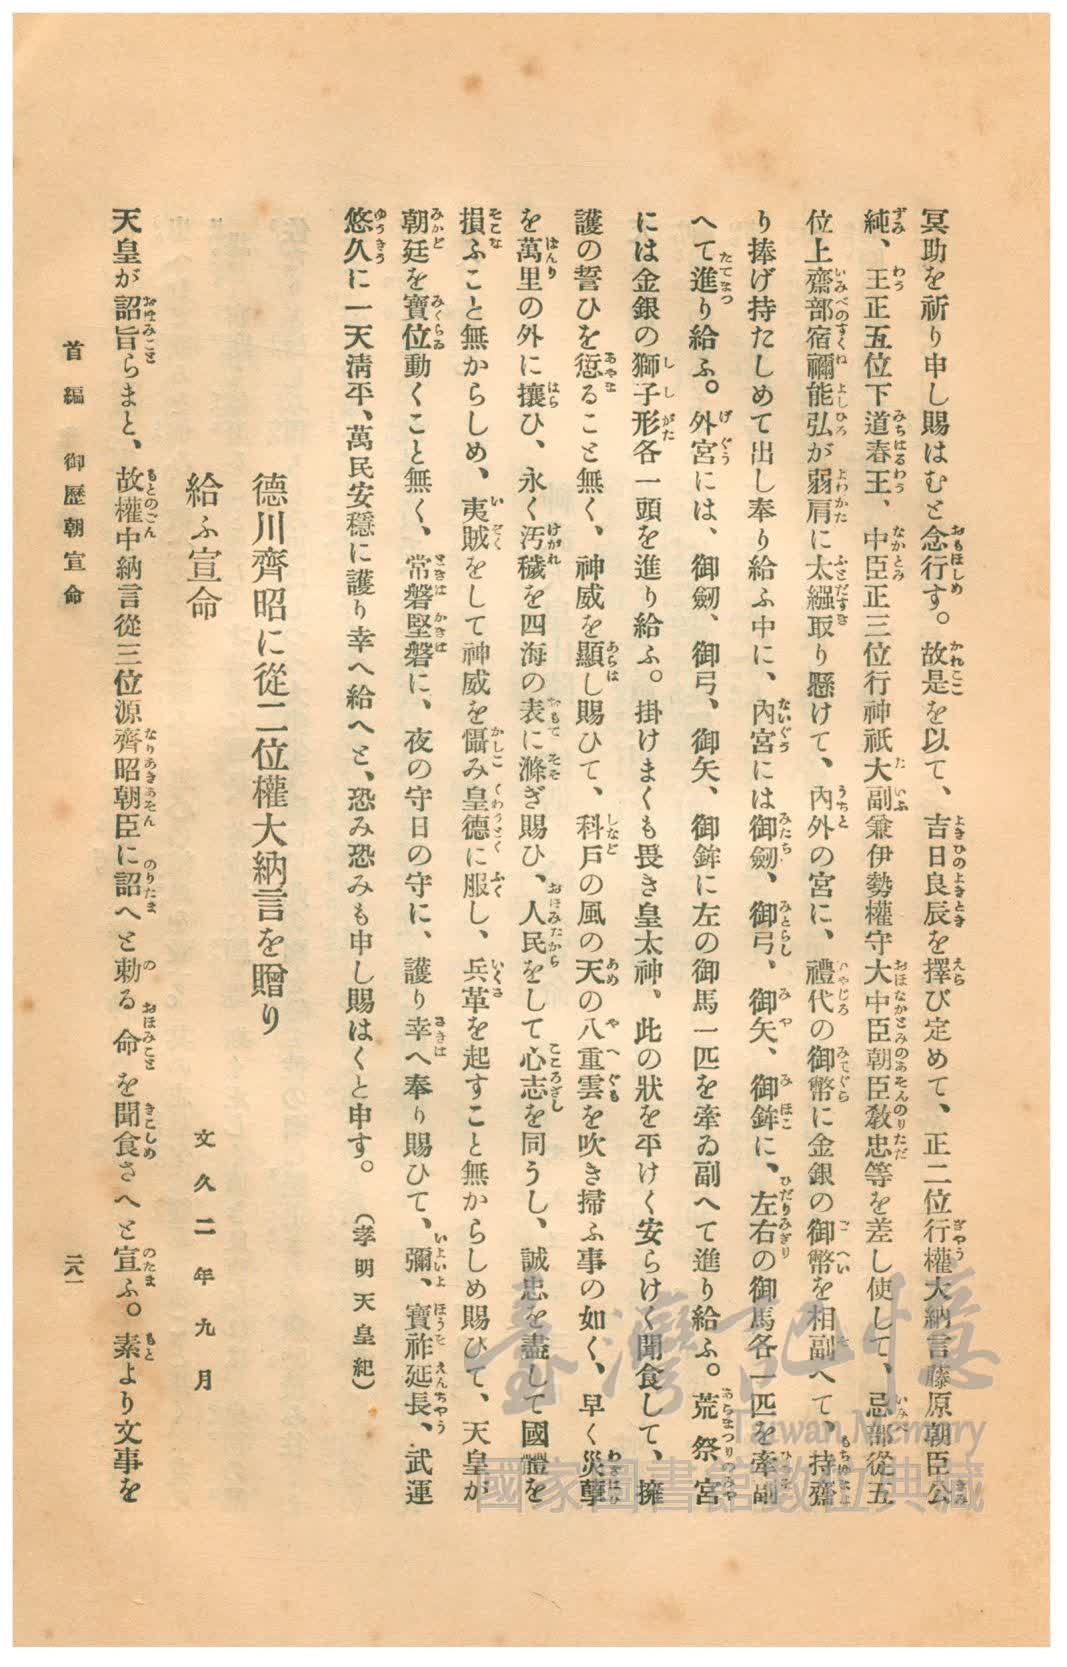 冥助を祈り申し賜はむと念行す。故是を以て、吉日良辰を擇び定めて、正二位行權大納言藤原朝臣公
純、王正五位下道春王、中臣正三位行神祇大副兼伊勢權守大中臣朝臣敎忠等を差し使して、忌部從五
位上齋部宿禰能弘が弱肩に太繦取り懸けて、內外の宮に、禮代の御幣に金銀の御幣を相副へて、持齋
り捧げ持たしめて出し奉り給ふ中に、內宮には御劒、御弓、御矢、御鉾に、左右の御馬各一匹を牽副
へて進り給ふ。外宮には、御劒、御弓、御矢、御鉾に左の御馬一匹を牽ゐ副へて進り給ふ。荒祭宮
には金銀の獅子形各一頭を進り給ふ。掛けまくも畏き皇太神、此の狀を平けく安らけく聞食して、擁
護の誓ひを愆ること無く、神威を顯し賜ひて、科戶の風の天の八重雲を吹き掃ふ事の如く、早く災孽
を萬里の外に攘ひ、永く汚穢を四海の表に滌ぎ賜ひ、人民をして心志を同うし、誠忠を盡して國體を
損ふこと無からしめ、夷賊をして神威を懾み皇德に服し、兵革を起すこと無からしめ賜ひて、天皇が
朝廷を寶位動くこと無く、常磐堅磐に、夜の守日の守に、護り幸へ奉り賜ひて、彌、寶祚延長、武運
悠久に一天淸平、萬民安穩に護り幸へ給へと、恐み恐みも申し賜はくと申す。（孝明天皇紀）
德川齊昭に從二位權大納言を贈り
給ふ宣命
文久二年九月
天皇が詔旨らまと、故權中納言從三位源齊昭朝臣に詔へと勅る命を聞食さへと宣ふ。素より文事を
首編 御歷朝宣命
二八一
臺灣記憶
Taiwan Memory
國家圖書館數位典藏